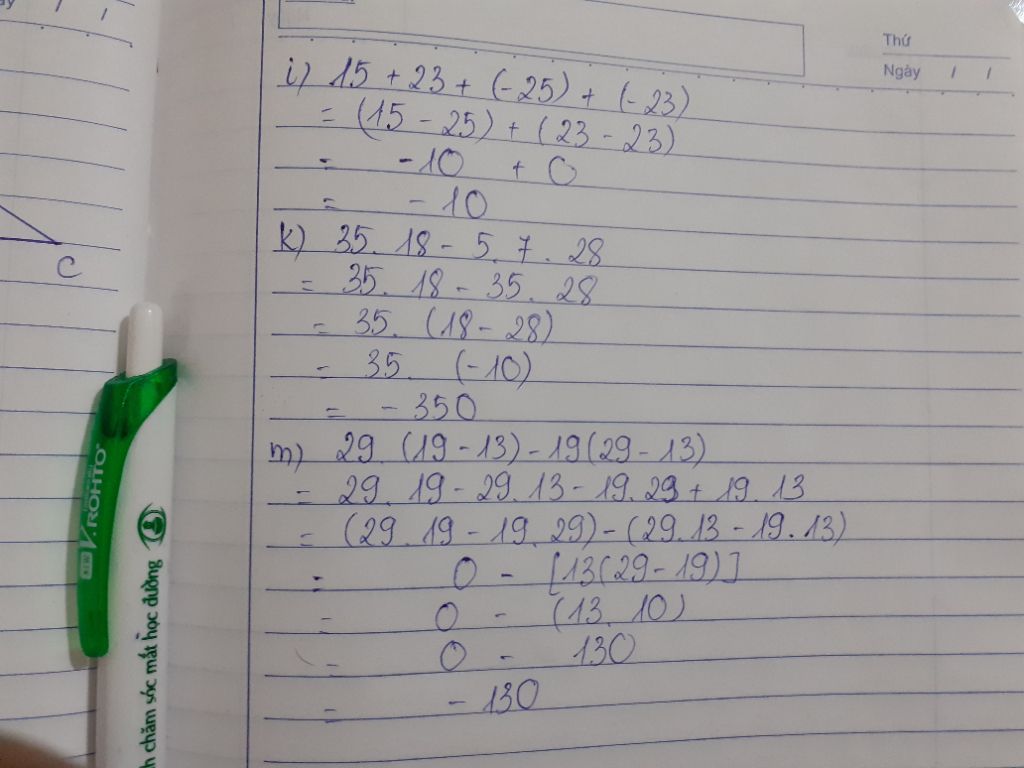 Thứ
Ngày / /
i) 15 + 23 + (-25) + (-23)
= (15 - 25) + (23 - 23)
= -10 + 0
= - 10
k) 35. 18 - 5. 7. 28
= 35. 18 - 35. 28
= 35. (18 - 28)
= 35. (-10)
= - 350
m) 29. (19 - 13) - 19(29 - 13)
= 29. 19 - 29. 13 - 19. 29 + 19. 13
= (29. 19 - 19. 29) - (29. 13 - 19. 13)
= 0 - [13(29 - 19)]
= 0 - (13. 10)
= 0 - 130
= - 130
C
V.ROHTO
chăm sóc mắt học đường